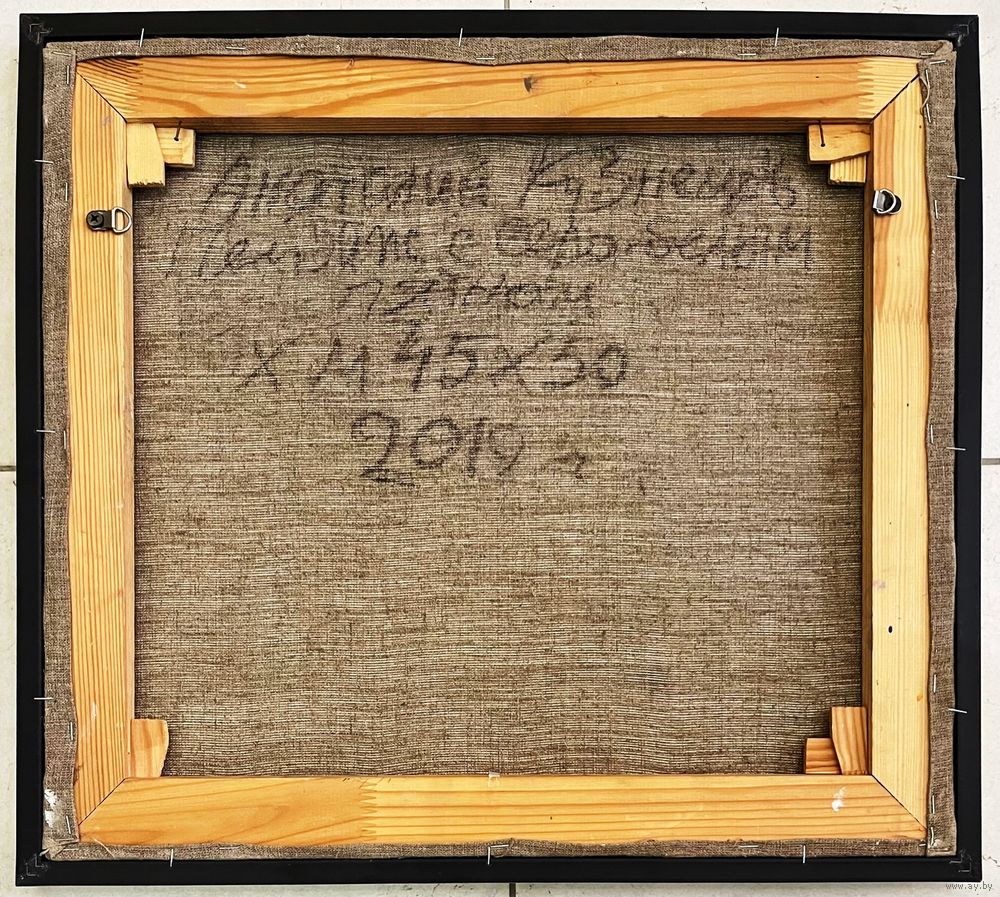 Анатолий Кузнецов
Пейзаж с серо-белым
пятном
Х М 45х50
2019 г
www.ay.by